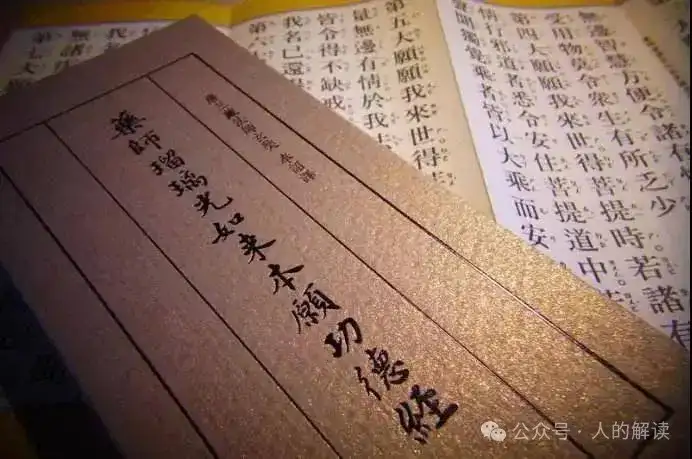 無邊智慧方便令諸有
受用物莫令衆生有所乏少
第四大願願我來世得菩提時若諸有
情行邪道者悉令安住菩提道中若
聲聞獨覺乘者皆以大乘而安
第五大願願我來世得
量無邊有情於我法
皆令得不缺戒
我名已還得
第六
無諸
第七大
奉詔譯
藥師瑠璃光如来本願功德經
公众号·人的解读